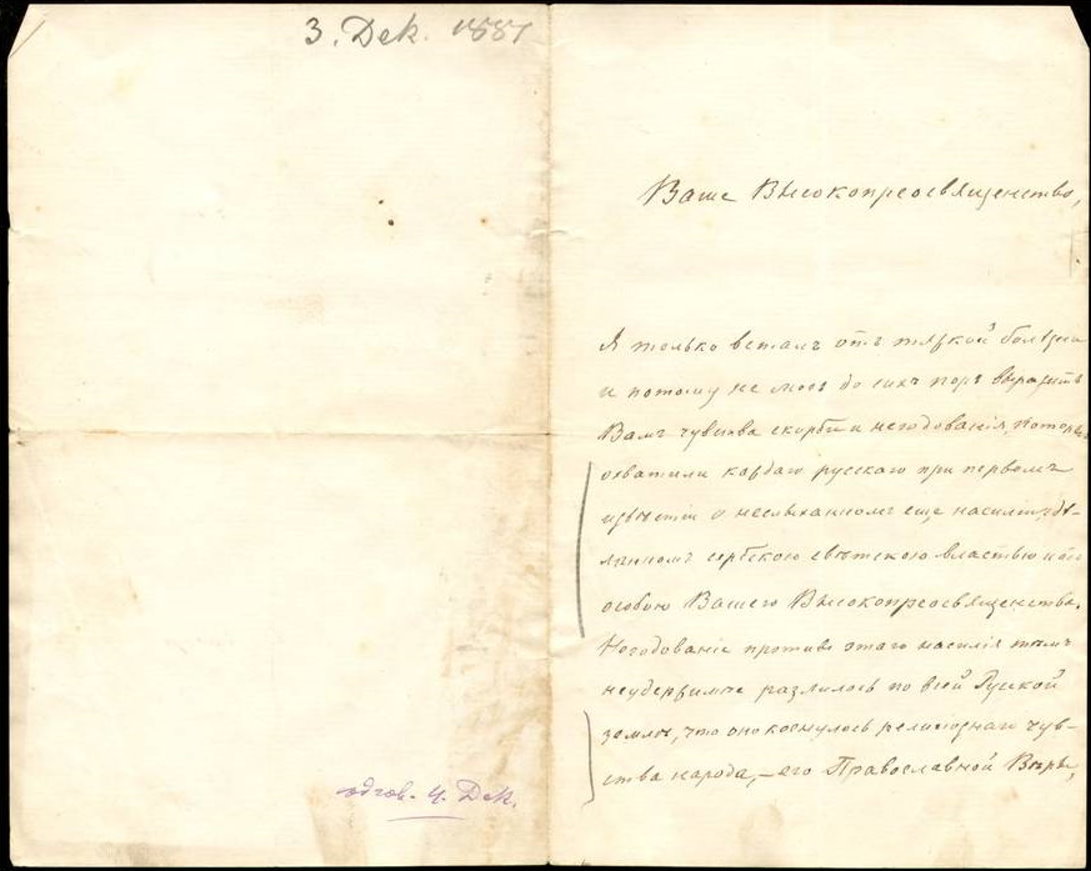 3. Дек. 1881
одгов. 4. Дек.
Ваше Высокопреосвященство,
Я только всталъ отъ тяжкой болѣзни
и потому не могъ до сихъ поръ выразить
Вамъ чувства скорби и негодованія, которыя
охватили каждаго русскаго при первомъ
извѣстіи о неслыханномъ еще насиліи, сдѣ-
ланномъ сербскою свѣтскою властью надъ
особою Вашего Высокопреосвященства.
Негодованіе противъ этаго насилія тѣмъ
неудержимѣе разлилось по всей Русской
землѣ, что оно коснулось религіознаго чув-
ства народа, – его Православной Вѣры,